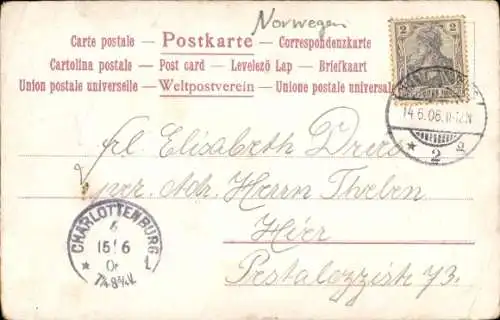 Norwegen
Carte postale — Postkarte — Correspondenzkarte
Cartolina postale — Post card — Levelező Lap — Briefkaart
Union postale universelle — Weltpostverein — Unione postale universale
2 2
14.6.06. 11-12N
* 2 a
Frl. Elisabeth Drees
per. Adr. Herrn Theben
Hier
Pestalozzistr 73.
CHARLOTTENBURG
15/6
* 1